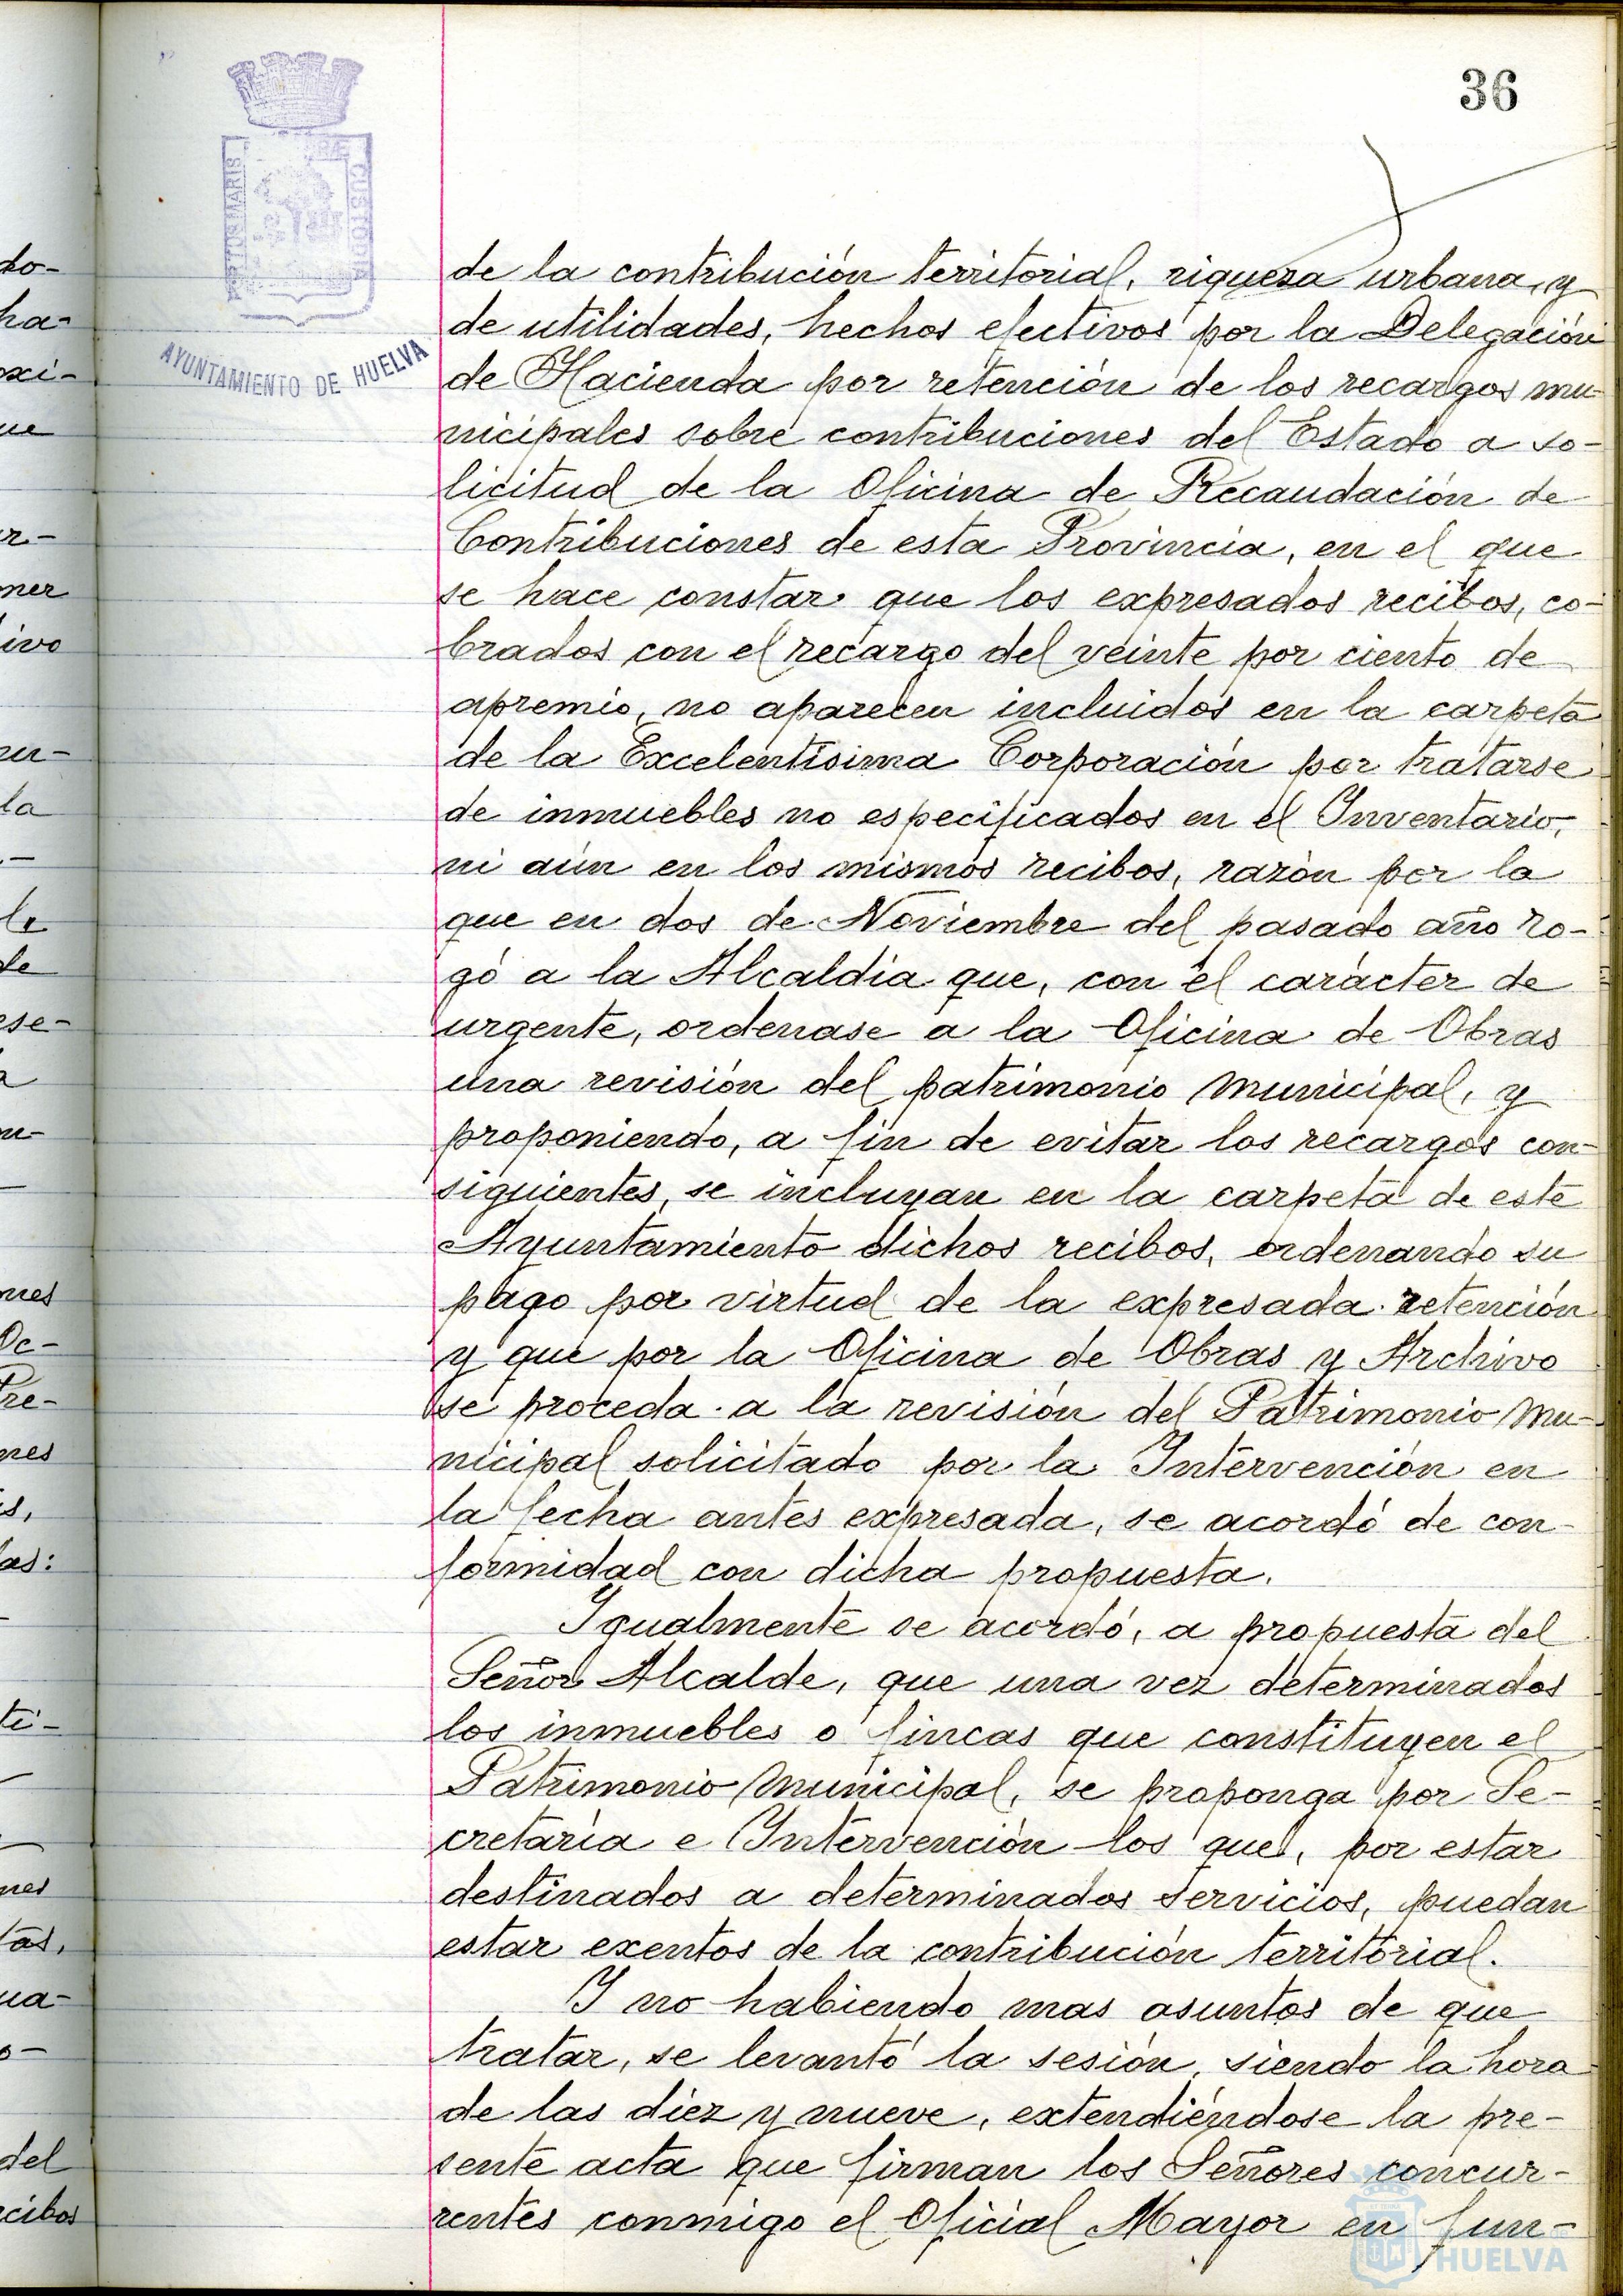 36
PORTUS MARIS
CUSTODIA
AYUNTAMIENTO DE HUELVA
de la contribución territorial, riqueza urbana, y
de utilidades, hechos efectivos por la Delegación
de Hacienda por retención de los recargos mu-
nicipales sobre contribuciones del Estado a so-
licitud de la Oficina de Recaudación de
Contribuciones de esta Provincia, en el que
se hace constar que los expresados recibos, co-
brados con el recargo del veinte por ciento de
apremio, no aparecen incluidos en la carpeta
de la Excelentísima Corporación por tratarse
de inmuebles no especificados en el Inventario,
ni aún en los mismos recibos, razón por la
que en dos de Noviembre del pasado año ro-
gó a la Alcaldía que, con el carácter de
urgente, ordenase a la Oficina de Obras
una revisión del patrimonio Municipal, y
proponiendo, a fin de evitar los recargos con-
siguientes, se incluyan en la carpeta de este
Ayuntamiento dichos recibos, ordenando su
pago por virtud de la expresada retención
y que por la Oficina de Obras y Archivo
se proceda a la revisión del Patrimonio Mu-
nicipal solicitado por la Intervención en
la fecha antes expresada, se acordó de con-
formidad con dicha propuesta.
Igualmente se acordó, a propuesta del
Señor Alcalde, que una vez determinados
los inmuebles o fincas que constituyen el
Patrimonio Municipal, se proponga por Se-
cretaría e Intervención los que, por estar
destinados a determinados servicios, puedan
estar exentos de la contribución territorial.
Y no habiendo mas asuntos de que
tratar, se levantó la sesión, siendo la hora
de las diez y nueve, extendiéndose la pre-
sente acta que firman los Señores concur-
rentes conmigo el Oficial Mayor en fun-
HUELVA